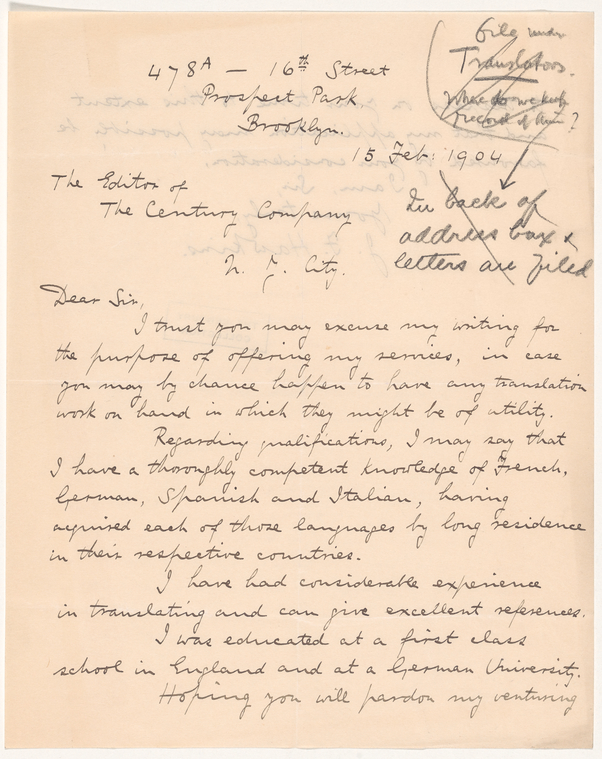 File under
Translators.
Where do we keep
record of them?
478A — 16th Street
Prospect Park,
Brooklyn.
15 Feb: 1904
In back of
address box &
letters are filed
The Editor of
The Century Company
N. Y. City.
Dear Sir,
I trust you may excuse my writing for
the purpose of offering my services, in case
you may by chance happen to have any translation
work on hand in which they might be of utility.
Regarding qualifications, I may say that
I have a thoroughly competent knowledge of French,
German, Spanish and Italian, having
acquired each of those languages by long residence
in their respective countries.
I have had considerable experience
in translating and can give excellent references.
I was educated at a first class
school in England and at a German University.
Hoping you will pardon my venturing